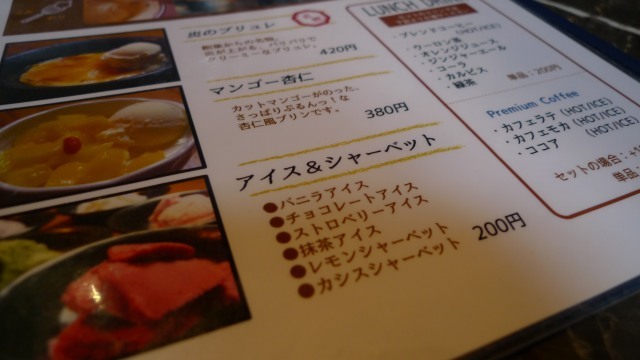 炎のブリュレ
炎が上がる、パリパリで
クリーミーなブリュレ。
420円
マンゴー杏仁
カットマンゴーがのった、
さっぱりぷるんっ！な
杏仁風プリンです。
380円
アイス＆シャーベット
●バニラアイス
●チョコレートアイス
●ストロベリーアイス
●抹茶アイス
●レモンシャーベット
●カシスシャーベット
200円
LUNCH DRINK
・ブレンドコーヒー
(HOT/ICE)
・ウーロン茶
・オレンジジュース
・ジンジャーエール
・コーラ
・カルピス
・緑茶
単品：200円
Premium Coffee
・カフェラテ (HOT/ICE)
・カフェモカ (HOT/ICE)
・ココア (HOT/ICE)
セットの場合：+1
単品